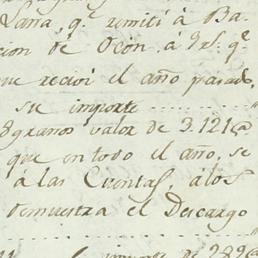 Lana, q.e remití à Ba
cion de Ocón, á rs. q.e
ue recioi el año pasado,
su importe
8 granos valor de 3.121@
que en todo el año, se
á las Cuentas, álos
demuestra el Descargo